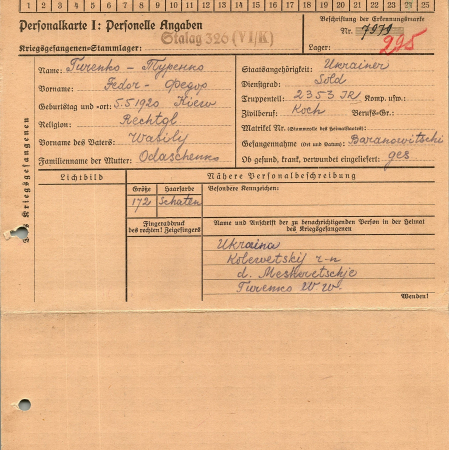 1 2 3 4 5 6 7 8 9 10 11 12 13 14 15 16 17 18 19 20 21 22 23 24 25
Personalkarte I: Personelle Angaben
Beschriftung der Erkennungsmarke
Kriegsgefangenen-Stammlager: Stalag 326 (VI/K)
Nr. 7971
Lager: 295
Des Kriegsgefangenen
Name: Turenko - Туренко
Vorname: Fedor - Федор
Geburtstag und -ort: 5.5.1920 Kiew
Religion: Rechtgl
Vorname des Vaters: Wasilij
Familienname der Mutter: Odaschenko
Staatsangehörigkeit: Ukrainer
Dienstgrad: Sold
Truppenteil: 2353 JR Komp. usw.
Zivilberuf: Koch Berufs-Gr.
Matrikel Nr. (Stammrolle des Heimatstaates):
Gefangennahme (Ort und Datum): Baranowitschi
Ob gesund, krank, verwundet eingeliefert: ges
Lichtbild
Nähere Personalbeschreibung
Größe Haarfarbe Besondere Kennzeichen:
172
Fingerabdruck
des rechten! Zeigefingers
Name und Anschrift der zu benachrichtigenden Person in der Heimat
des Kriegsgefangenen
Ukraina
r-n
d.
Turenko W W
Wenden!